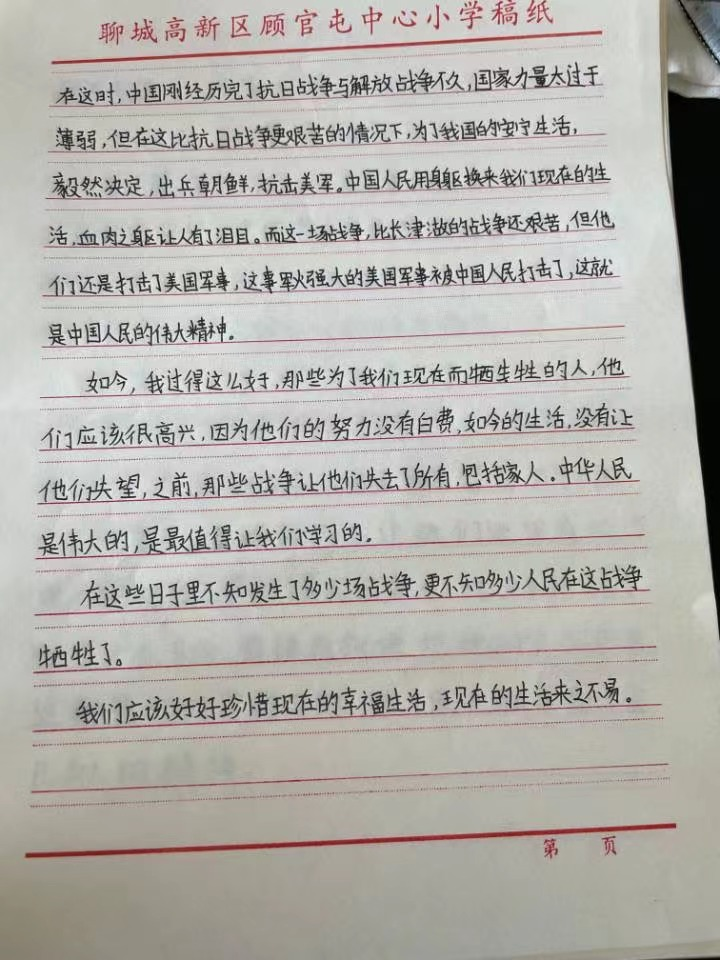 聊城高新区顾官屯中心小学稿纸
在这时,中国刚经历完了抗日战争与解放战争不久,国家力量太过于
薄弱,但在这比抗日战争更艰苦的情况下,为了我国的安宁生活,
毅然决定,出兵朝鲜,抗击美军。中国人民用身躯换来我们现在的生
活,血肉之躯让人有了泪目。而这一场战争,比长津湖的战争还艰苦,但他
们还是打击了美国军事,这事军火强大的美国军事被中国人民打击了,这就
是中国人民的伟大精神。
如今,我过得这么好,那些为了我们现在而牺牲的人,他
们应该很高兴,因为他们的努力没有白费,如今的生活,没有让
他们失望,之前,那些战争让他们失去了所有,包括家人。中华人民
是伟大的,是最值得让我们学习的。
在这些日子里不知发生了多少场战争,更不知多少人民在这战争
牺牲了。
我们应该好好珍惜现在的幸福生活,现在的生活来之不易。
第 页